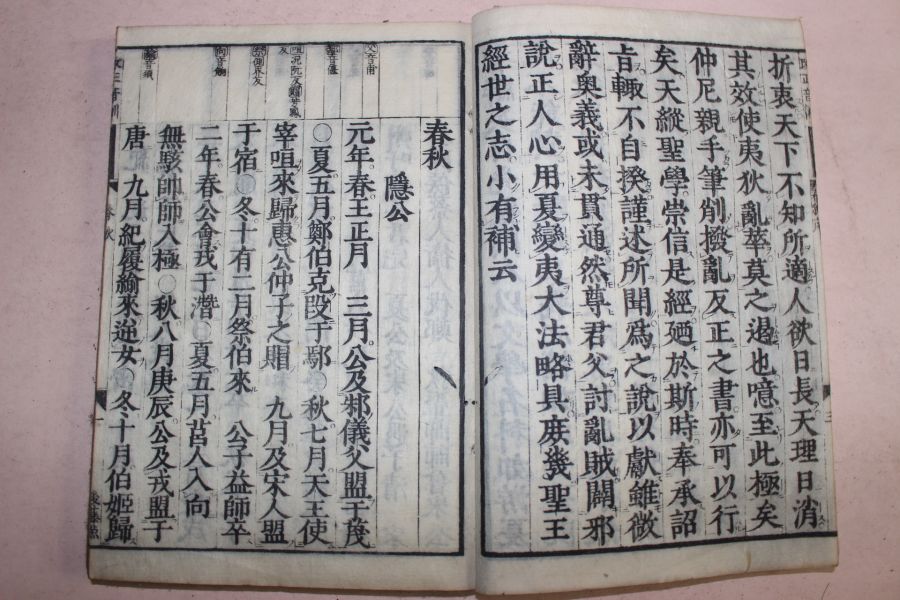 折衷天下不知所適人欲日長天理日消
其效使夷狄亂華莫之遏也噫至此極矣
仲尼親手筆削撥亂反正之書亦可以行
矣天縱聖學崇信是經廼於斯時奉承詔
旨輒不自揆謹述所聞爲之說以獻雖微
辭奧義或未貫通然尊君父討亂賊闢邪
說正人心用夏變夷大法略具庶幾聖王
經世之志小有補云
春秋
隱公
元年春王正月　三月公及邾儀父盟于蔑
○夏五月鄭伯克段于鄢○秋七月天王使
宰咺來歸惠公仲子之賵　九月及宋人盟
于宿○冬十有二月祭伯來　公子益師卒
二年春公會戎于潛○夏五月莒人入向
無駭帥師入極○秋八月庚辰公及戎盟于
唐　九月紀履緰來逆女○冬十月伯姬歸